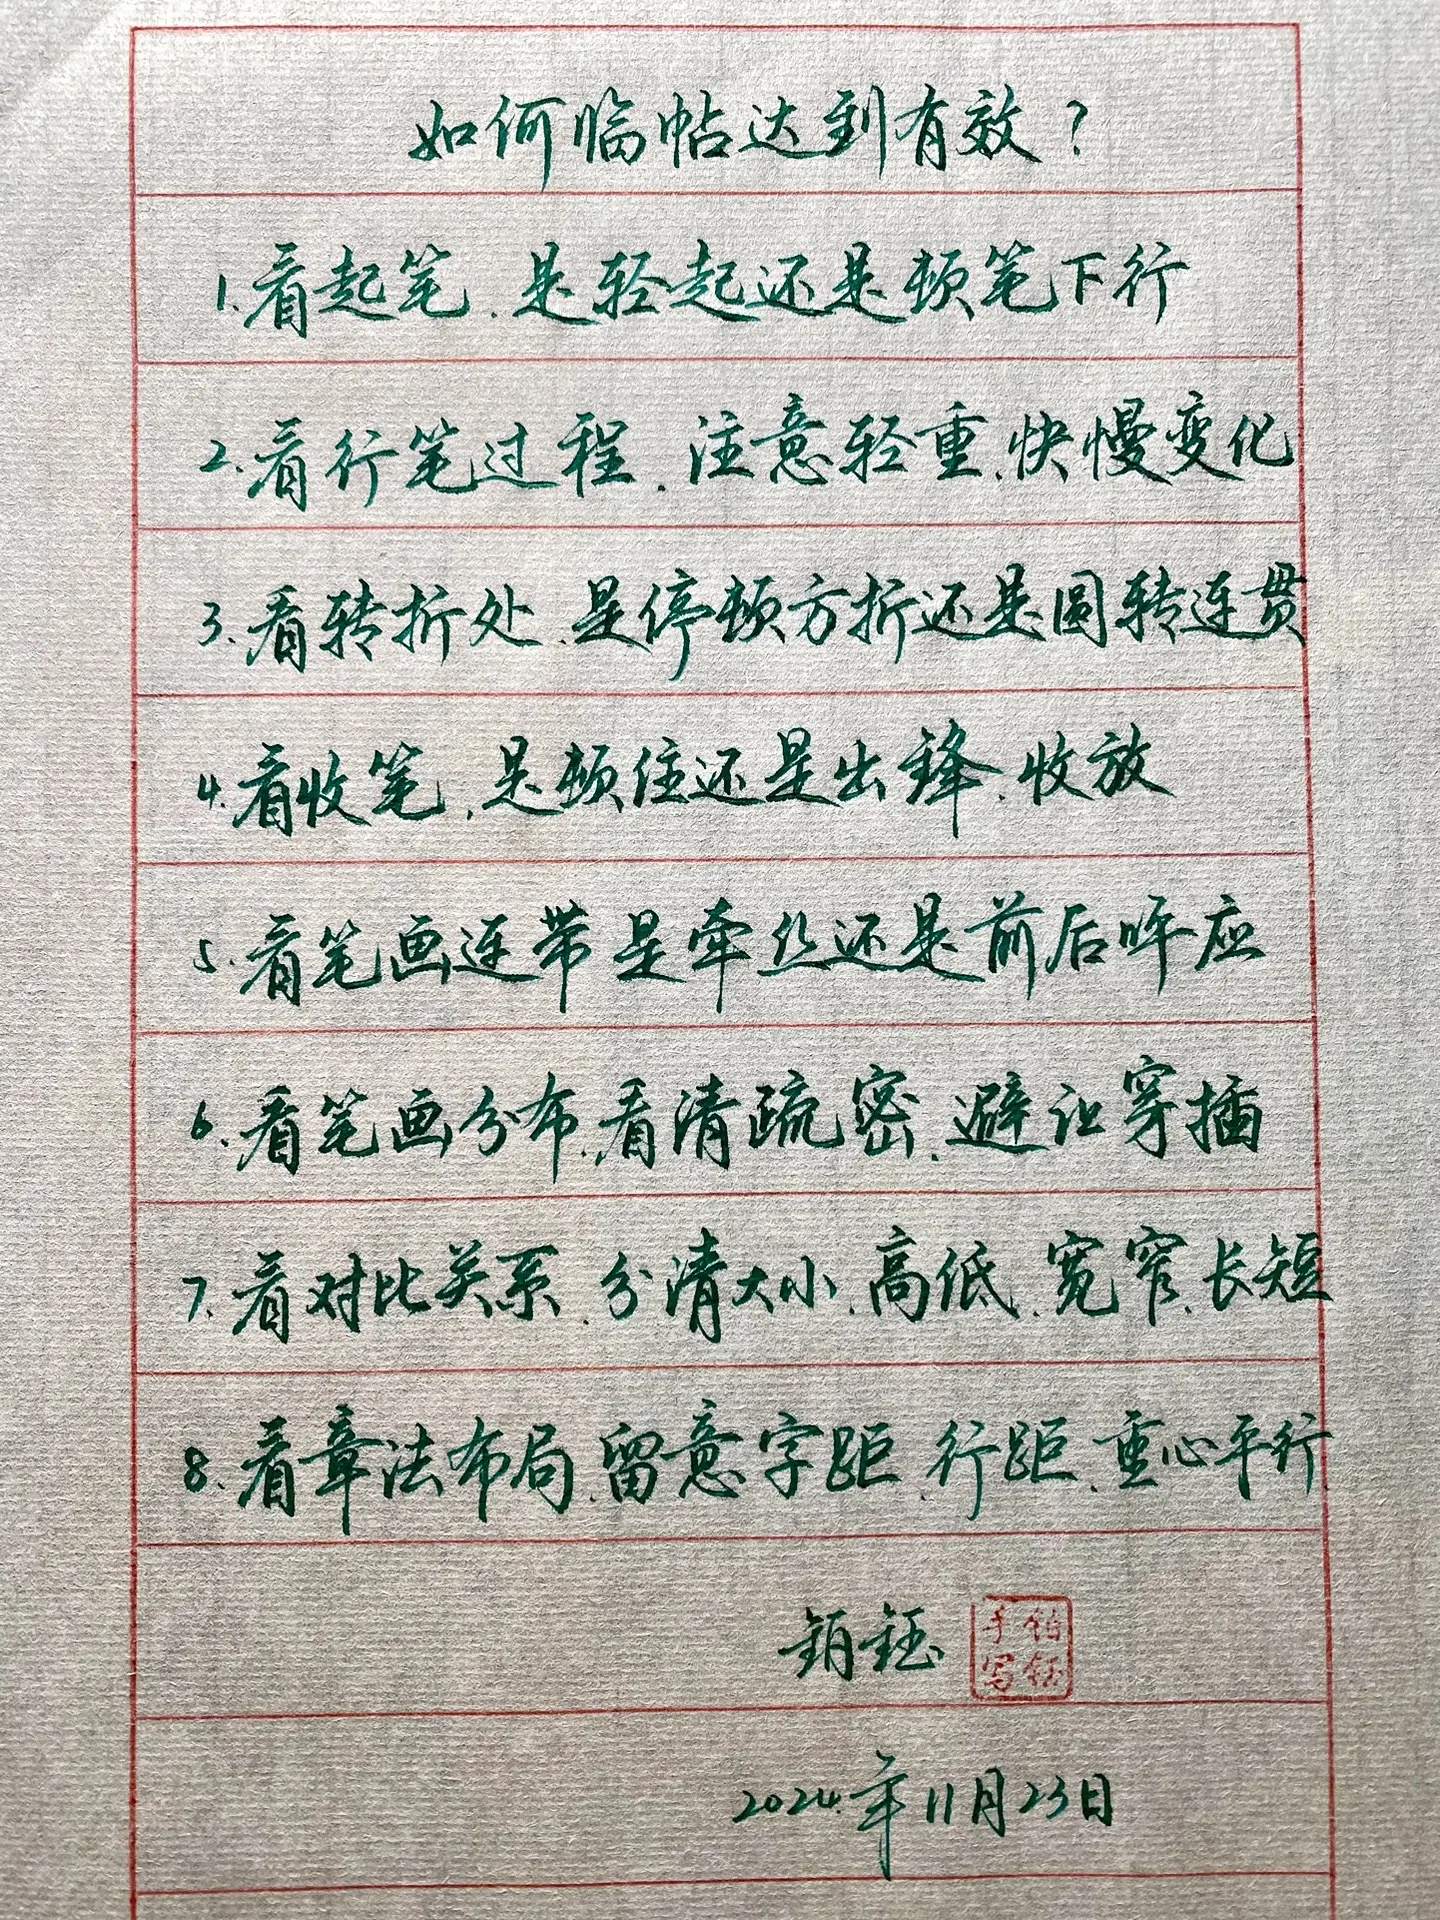 如何临帖达到有效?
1.看起笔.是轻起还是顿笔下行
2.看行笔过程.注意轻重.快慢变化
3.看转折处.是停顿方折还是圆转连贯
4.看收笔.是顿住还是出锋.收放
5.看笔画连带是牵丝还是前后呼应
6.看笔画分布.看清疏密.避让穿插
7.看对比关系.分清大小.高低.宽窄.长短
8.看章法布局.留意字距.行距.重心平行
钰
铂钰
手写
2024年11月23日